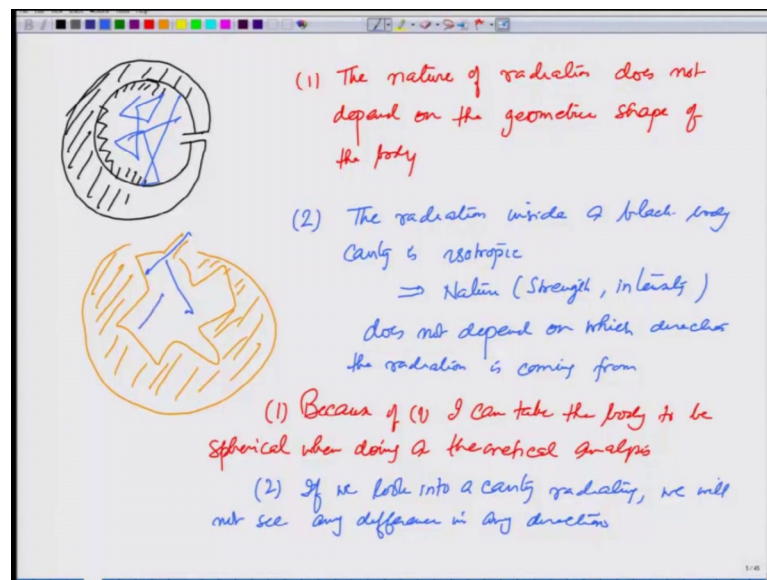 (1) The nature of radiation does not
depend on the geometric shape of
the body
(2) The radiation inside a black body
cavity is isotropic
⇒ Nature (Strength, intensity)
does not depend on which direction
the radiation is coming from
(1) Because of (1) I can take the body to be
spherical when doing a theoretical analysis
(2) If we look into a cavity radiating, we will
not see any difference in any direction
5/45